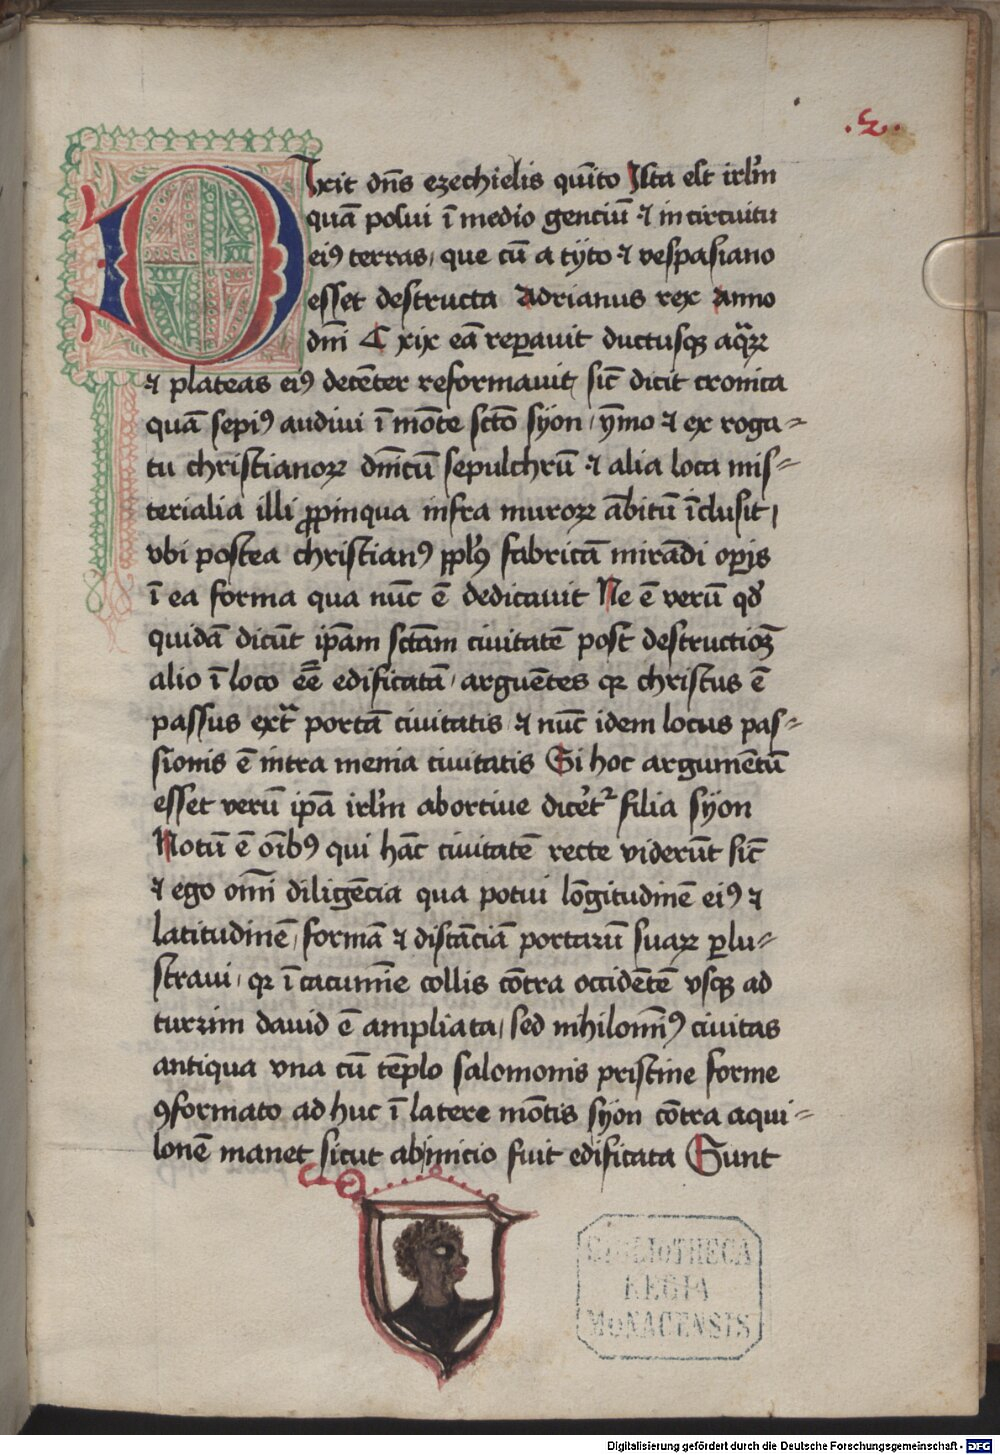 .2.
Dixit dn̄s ezechielis quīto Ista est irl̄m
quā posui ī medio genciū ⁊ in circuitu
eiꝰ terras, que cū a tÿto ⁊ vespasiano
esset destructa Adrianus rex Anno
dn̄i C xix eā reꝑauit ductusqꝫ aq̄rꝝ
⁊ plateas eiꝰ decēter reformauit, sic̄ dicit cronica
quā sepiꝰ audiui ī mōte sctō sÿon, ÿmo ⁊ ex roga⸗
tu christianoꝝ dn̄icū sepulchrū ⁊ alia loca mis⸗
terialia illi ꝓpinqua infra muroꝝ ābitū īclusit,
vbi postea christianꝰ ppl̄ꝰ fabricā mirādi oꝑis
ī ea forma qua nūc ē dedicauit Ne ē verū qd̕
quidā dicūt ip̄am sctām ciuitatē post destructiōꝫ
alio ī loco eē̄ edificatā, arguētes qꝛ christus ē
passus ext̄ portā ciuitatis ⁊ nūc idem locus pas⸗
sionis ē intra menia ciuitatis Si hoc argumētū
esset verū ip̄a irl̄m abortiue dicet̄ filia sÿon
Notū ē oīb̄ꝰ qui hāc ciuitatē recte viderūt sic̄
⁊ ego om̄i diligēcia qua potui lōgitudinē eiꝰ ⁊
latitudinē, formā ⁊ distāciā portarū suaꝝ ꝑlu⸗
straui, qꝛ ī cacumīe collis cōtra occidētē vsqꝫ ad
turrim dauid ē ampliata, sed nihilomīꝰ ciuitas
antiqua vna cū tēplo salomonis pristine forme
ꝯformato ad huc ī latere mōtis sÿon cōtra aqui⸗
lonē manet sicut ab inicio fuit edificata Sunt
BIBLIOTHECA
REGIA
MONACENSIS
Digitalisierung gefördert durch die Deutsche Forschungsgemeinschaft - DFG